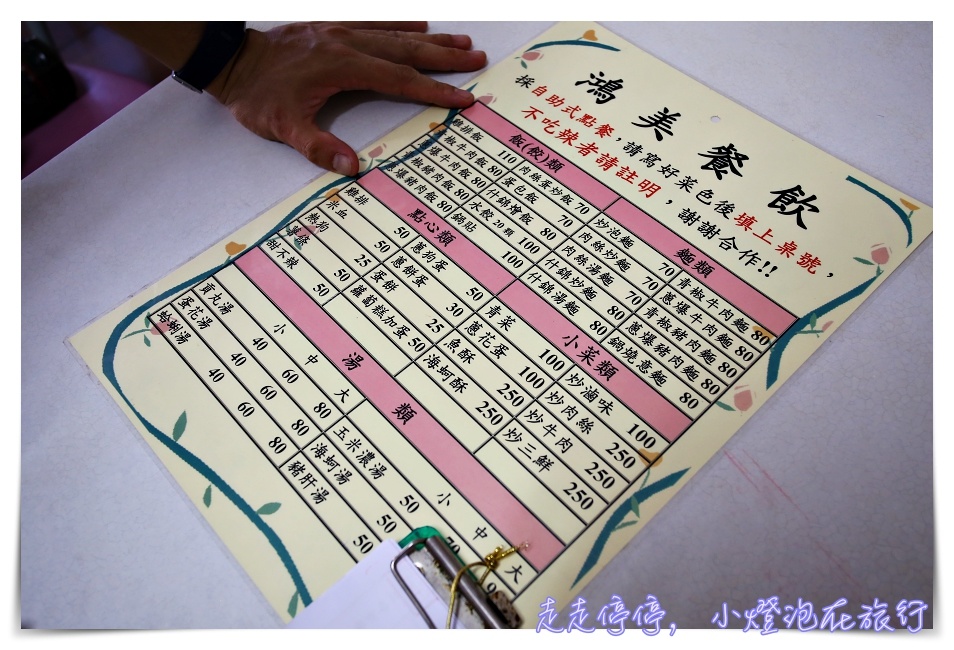 鴻美餐飲
採自助式點餐,請寫好菜色後填上桌號,
不吃辣者請註明,謝謝合作!!
飯(餃)類 麵類
雞排飯 110 肉絲蛋炒飯 70 炒泡麵 70 青椒牛肉麵 80
椒牛肉飯 80 蛋包飯 70 肉絲炒麵 70 蔥爆牛肉麵 80
爆牛肉飯 80 什錦燴飯 80 肉絲湯麵 70 青椒豬肉麵 80
椒豬肉飯 80 水餃 20顆 100 什錦炒麵 80 蔥爆豬肉麵 80
爆豬肉飯 80 鍋貼 100 什錦湯麵 80 鍋燒意麵 80
點心類 小菜類
雞排 50 蔥狗蛋 50 青菜 100 炒滷味 100
米血 50 蔥餅蛋 30 蔥花蛋 100 炒肉絲 250
熱狗 25 蛋餅 25 魚酥 250 炒牛肉 250
薯條 50 蘿蔔糕加蛋 50 海蚵酥 250 炒三鮮 250
甜不辣 50
湯類
小 中 大 小 中 大
貢丸湯 40 60 80 玉米濃湯 50 70
蛋花湯 40 60 80 海蚵湯 50
蛤蜊湯 40 60 80 豬肝湯 50
走走停停,小燈泡在旅行